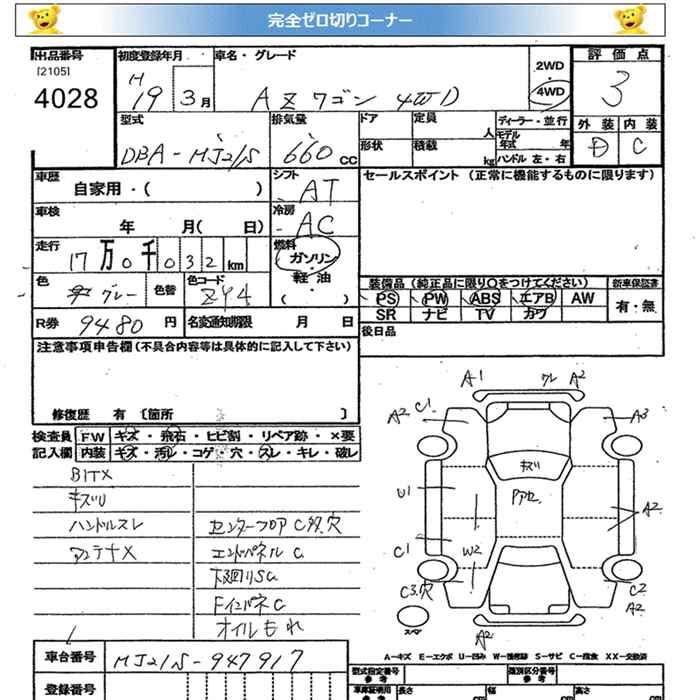 完全ゼロ切りコーナー
出品番号
[2105]
4028
初度登録年月
H
19 3月
車名・グレード
AZワゴン 4WD
2WD
・
4WD
評価点
3
外装 内装
D C
型式
DBA-MJ21S
排気量
660 cc
ドア
定員
人
ディーラー・並行
モデル
年式 年
形状
積載
kg
ハンドル 左・右
車歴
自家用・( )
シフト
AT
セールスポイント (正常に機能するものに限ります)
車検
年 月( 日)
冷房
AC
走行
17万0千032 km
燃料
ガソリン
・
軽油
( )
色
グレー
色替
色コード
ZY4
装備品(純正品に限り○をつけてください)
新車保証書
PS PW ABS エアB AW
SR ナビ TV カワ
有・無
R券 9480 円
名変通知期限 月 日
後日品
注意事項申告欄(不具合内容等は具体的に記入して下さい)
修復歴 有 〔箇所 〕
検査員
記入欄
FW キズ・飛石・ヒビ割・リペア跡・×要
内装 キズ・汚レ・コゲ・穴・スレ・キレ・破レ
キズU
ハンドルスレ
アンテナX
センターフロアC 穴
エンドパネルC
下廻りSC
FインパネC
オイルもれ
A1
A2
A2
C1
A3
キズ
U1
A2
C1
W2
C3.穴
C2
A2
スペア
A2
A-キズ E-エクボ U-凹み W-補修跡 S-サビ C-腐食 XX-交換済
車台番号
MJ21S-947917
登録番号
型式指定番号
参考
類別区分番号
参考
車庫証明用
参考
長さ
cm
幅
cm
高さ
cm